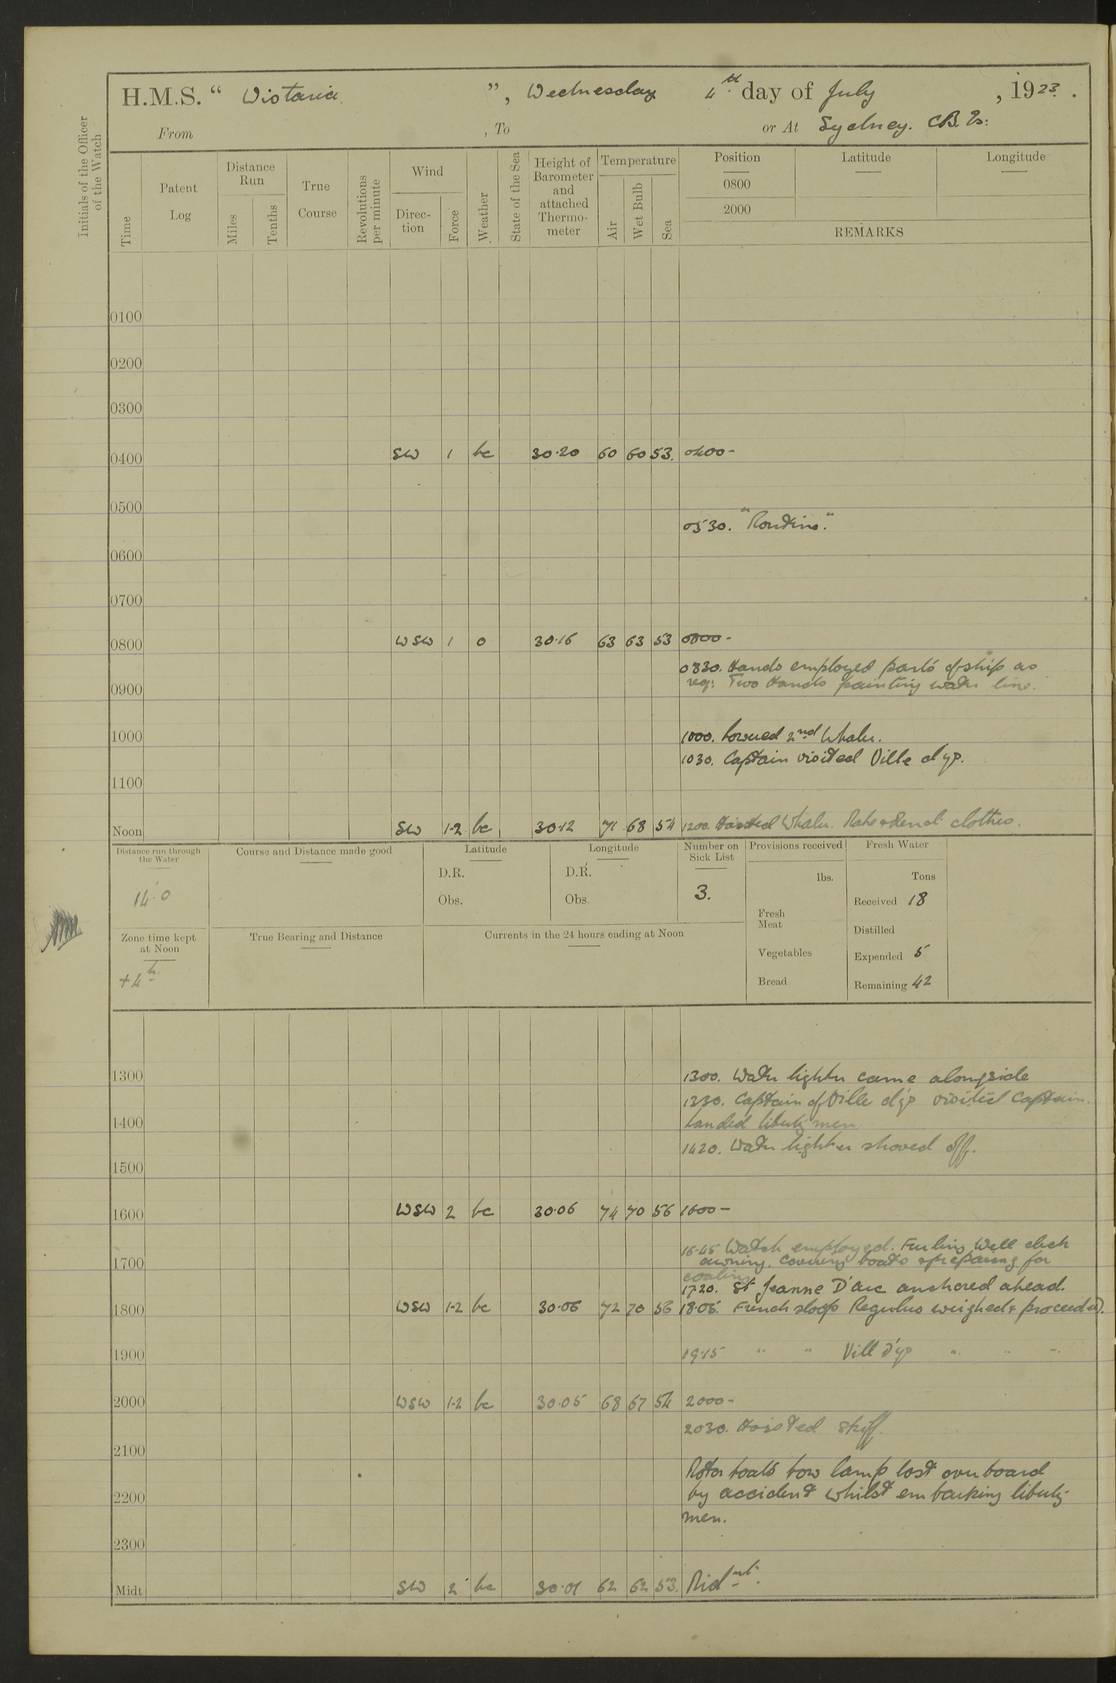 H.M.S. " Wistaria ", Wednesday 4th day of July, 1923.
From , To or At Sydney. C.B. Is:
Initials of the Officer of the Watch
Time
Patent Log
Distance Run
Miles
Tenths
True Course
Revolutions per minute
Wind
Direction
Force
Weather
State of the Sea
Height of Barometer and attached Thermometer
Temperature
Air
Wet Bulb
Sea
Position Latitude Longitude
0800
2000
REMARKS
0100
0200
0300
0400 SW 1 bc 30.20 60 60 53. 0400-
0500
0530. "Routine."
0600
0700
0800 WSW 1 o 30.16 63 63 53 0800-
0830. Hands employed parts of ship as
req: Two Hands painting water line.
0900
1000 1000. Lowered 2nd Whaler.
1030. Captain visited Ville d'yp.
1100
Noon SW 1-2 bc 30.12 71 68 54 1200. Hoisted Whaler. Make & Mend clothes.
Distance run through the Water
14.0
Course and Distance made good
Latitude
D.R.
Obs.
Longitude
D.R.
Obs.
Number on Sick List
3.
Provisions received
lbs.
Fresh Meat
Vegetables
Bread
Fresh Water
Tons
Received 18
Distilled
Expended 5
Remaining 42
Zone time kept at Noon
+4h
True Bearing and Distance
Currents in the 24 hours ending at Noon
1300 1300. Water lighter came alongside
1330. Captain of Ville d'yp visited Captain.
1400 Landed liberty men
1420. Water lighter shoved off.
1500
1600 WSW 2 bc 30.06 74 70 56 1600-
16.45 Watch employed. Furling Well deck
1700 awning, Covering boats & preparing for
coaling
1720. St Jeanne D'arc anchored ahead.
1800 WSW 1-2 bc 30.06 72 70 56 18.05. French sloop Regulus weighed & proceeded.
1900 19.15 " " Vill d'yp " " "
2000 WSW 1-2 bc 30.05 68 67 54 2000-
2030. Hoisted skiff.
2100
Motor boats bow lamp lost overboard
2200 by accident whilst embarking liberty
men.
2300
Midt SW 2 bc 30.01 62 62 53. Midnt.